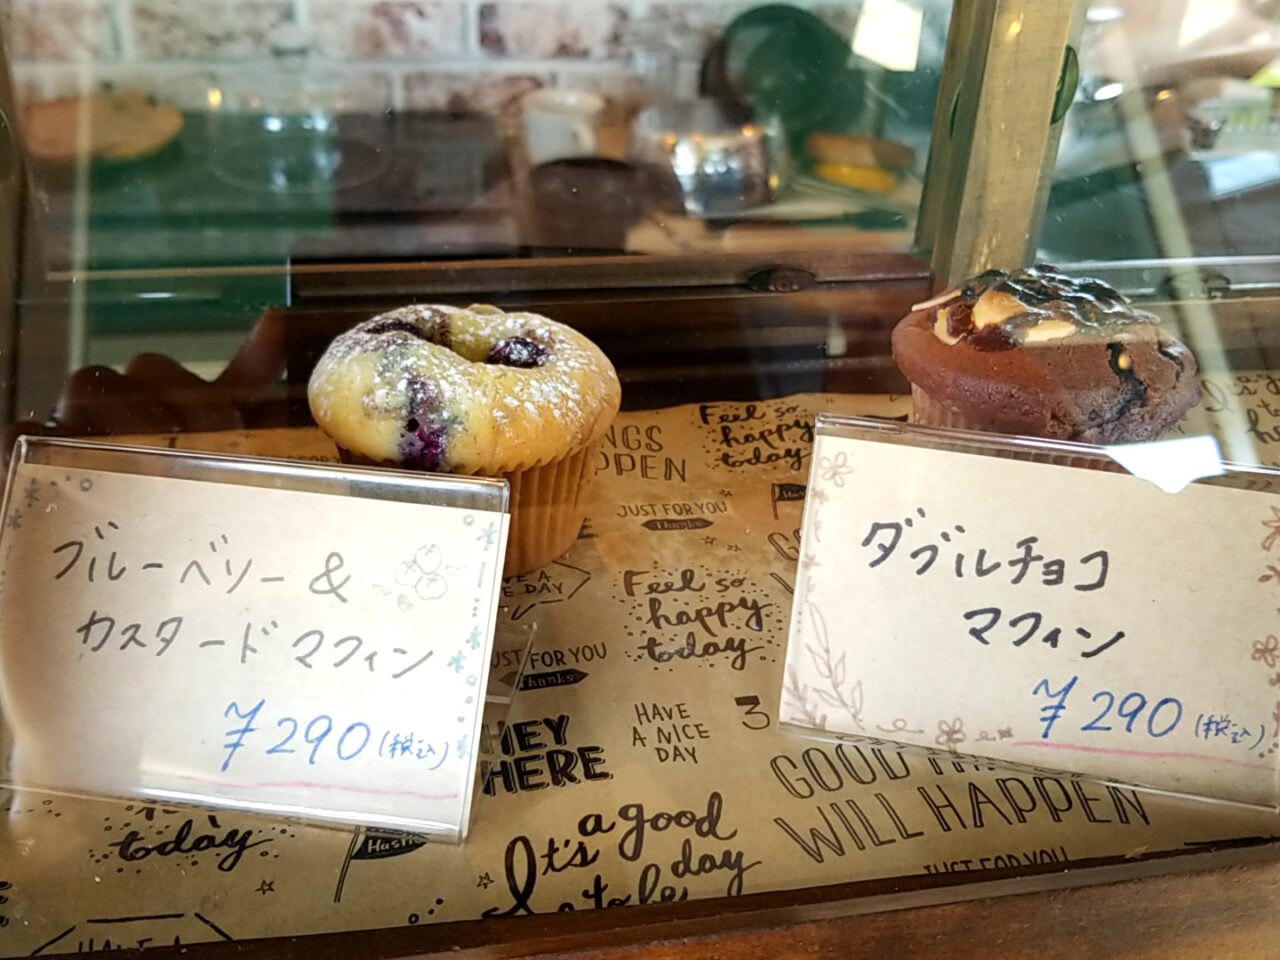 ブルーベリー &
カスタードマフィン
¥290(税込)
ダブルチョコ
マフィン
¥290(税込)
Feel so
happy
today
JUST FOR YOU
Thanks
Feel so
happy
today
JUST FOR YOU
Thanks
HAVE
A NICE
DAY
HEY
HERE
GOOD
WILL HAPPEN
today
It's a good
day
to be
JUST FOR YOU